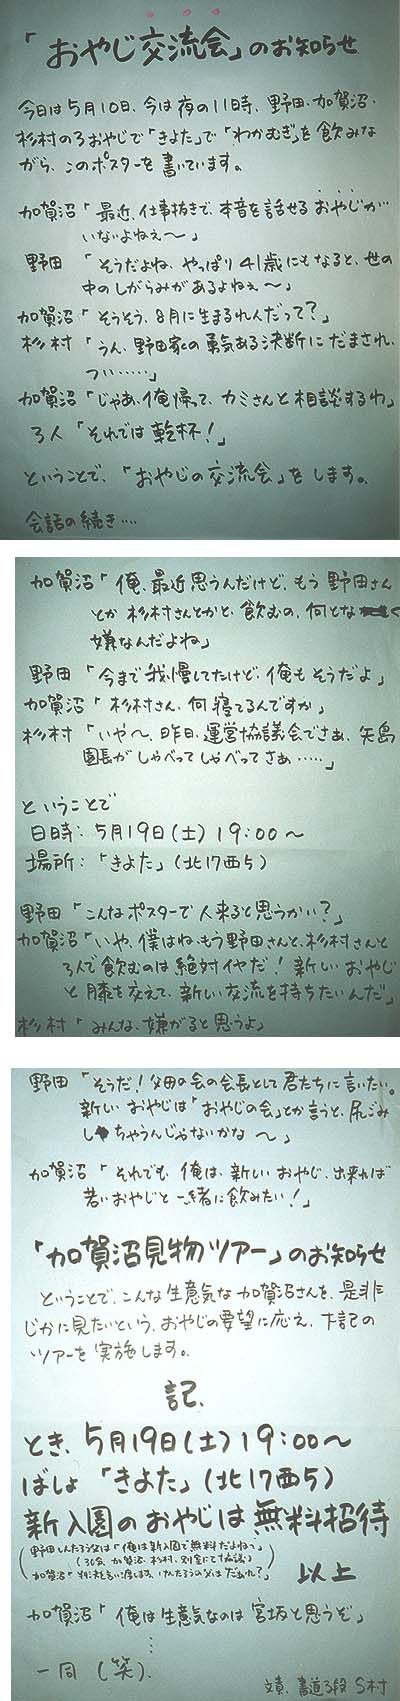 「おやじ交流会」のお知らせ
今日は5月10日、今は夜の11時、野田・加賀沼・
杉村の3おやじで「きよた」で「わかむぎ」を飲みな
がら、このポスターを書いています。
加賀沼「最近、仕事抜きで、本音を話せるおやじが
いないよねぇ〜」
野田「そうだよね、やっぱり41歳にもなると、世の
中のしがらみがあるよねぇ〜」
加賀沼「そうそう、8月に生まるれんだって?」
杉村「うん、野田家の勇気ある決断にだまされ、
つい……」
加賀沼「じゃあ、俺帰って、カミさんと相談するわ」
3人「それでは乾杯!」
ということで、「おやじの交流会」をします。
会話の続き…
加賀沼「俺、最近思うんだけど、もう野田さん
とか杉村さんとかと、飲むの、何とな く
嫌なんだよね」
野田「今まで我慢してたけど、俺もそうだよ」
加賀沼「杉村さん、何寝てるんですか」
杉村「いや〜、昨日、運営協議会でさあ、矢島
園長がしゃべってしゃべってさぁ……」
ということで
日時:5月19日(土)19:00〜
場所:「きよた」(北17西5)
野田「こんなポスターで人来ると思うかい?」
加賀沼「いや、僕はね、もう野田さんと、杉村さんと
3人で飲むのは絶対イヤだ!新しいおやじ
と膝を交えて、新しい交流を持ちたいんだ」
杉村「みんな、嫌がると思うよ」
野田「そうだ!父母の会の会長として君たちに言いたい。
新しいおやじは「おやじの会」とか言うと、尻ごみ
しちゃうんじゃないかな〜」
加賀沼「それでも俺は、新しいおやじ、出来れば
若いおやじと一緒に飲みたい!」
「加賀沼見物ツアー」のお知らせ
ということで、こんな生意気な加賀沼さんを、是非
じかに見たいという、おやじの要望に応え、下記の
ツアーを実施します。
記、
とき、5月19日(土)19:00〜
ばしょ「きよた」(北17西5)
新入園のおやじは無料招待
(野田しんたろう父は「俺は新入園で無料だよね」
加賀沼「判決を言い渡します。
以上
加賀沼「俺は生意気なのは宮坂と思うぞ」
⋮
一同(笑)、
文責、書道3段 S村